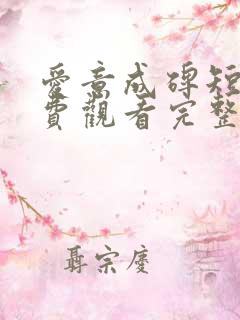 愛意成碑短
費觀看完整
聶宗慶